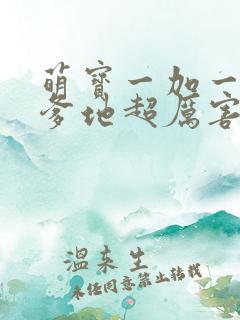 萌宝一加一
爹地超厉害
温来生
未经同意禁止转载